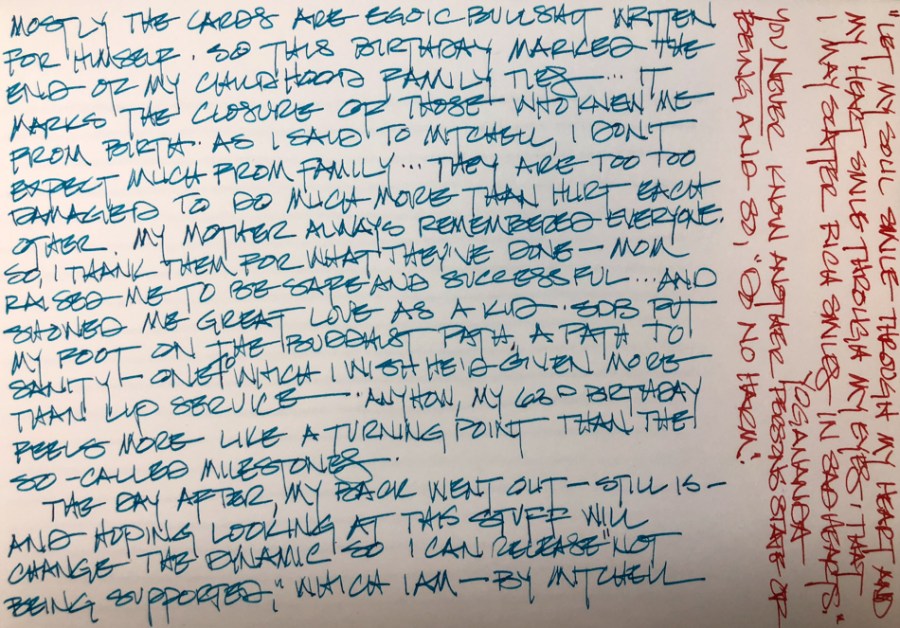 MOSTLY THE CARDS ARE EGOIC BULLSHIT WRITTEN
FOR HIMSELF. SO THIS BIRTHDAY MARKED THE
END OF MY CHILDHOOD FAMILY TIES... IT
MARKS THE CLOSURE OF THOSE WHO KNEW ME
FROM BIRTH. AS I SAID TO MITCHELL, I DON'T
EXPECT MUCH FROM FAMILY... THEY ARE TOO TOO
DAMAGED TO DO MUCH MORE THAN HURT EACH
OTHER. MY MOTHER ALWAYS REMEMBERED EVERYONE.
SO, I THANK THEM FOR WHAT THEY'VE DONE — MOM
RAISED ME TO BE SAFE AND SUCCESSFUL... AND
SHOWED ME GREAT LOVE AS A KID. SDB PUT
MY FOOT ON THE BUDDHIST PATH, A PATH TO
SANITY — ONE TO WHICH I WISH HE'D GIVEN MORE
THAN LIP SERVICE — . ANYHOW, MY 63RD BIRTHDAY
FEELS MORE LIKE A TURNING POINT THAN THE
SO-CALLED MILESTONES.
THE DAY AFTER, MY BACK WENT OUT — STILL IS —
AND HOPING LOOKING AT THIS STUFF WILL
CHANGE THE DYNAMIC SO I CAN RELEASE "NOT
BEING SUPPORTED," WHICH I AM — BY MITCHELL
"LET MY SOUL SMILE THROUGH MY HEART AND
MY HEART SMILE THROUGH MY EYES, THAT
I MAY SCATTER RICH SMILES IN SAD HEARTS."
YOGANANDA
YOU NEVER KNOW ANOTHER PERSON'S STATE OF
BEING AND SO, "DO NO HARM".